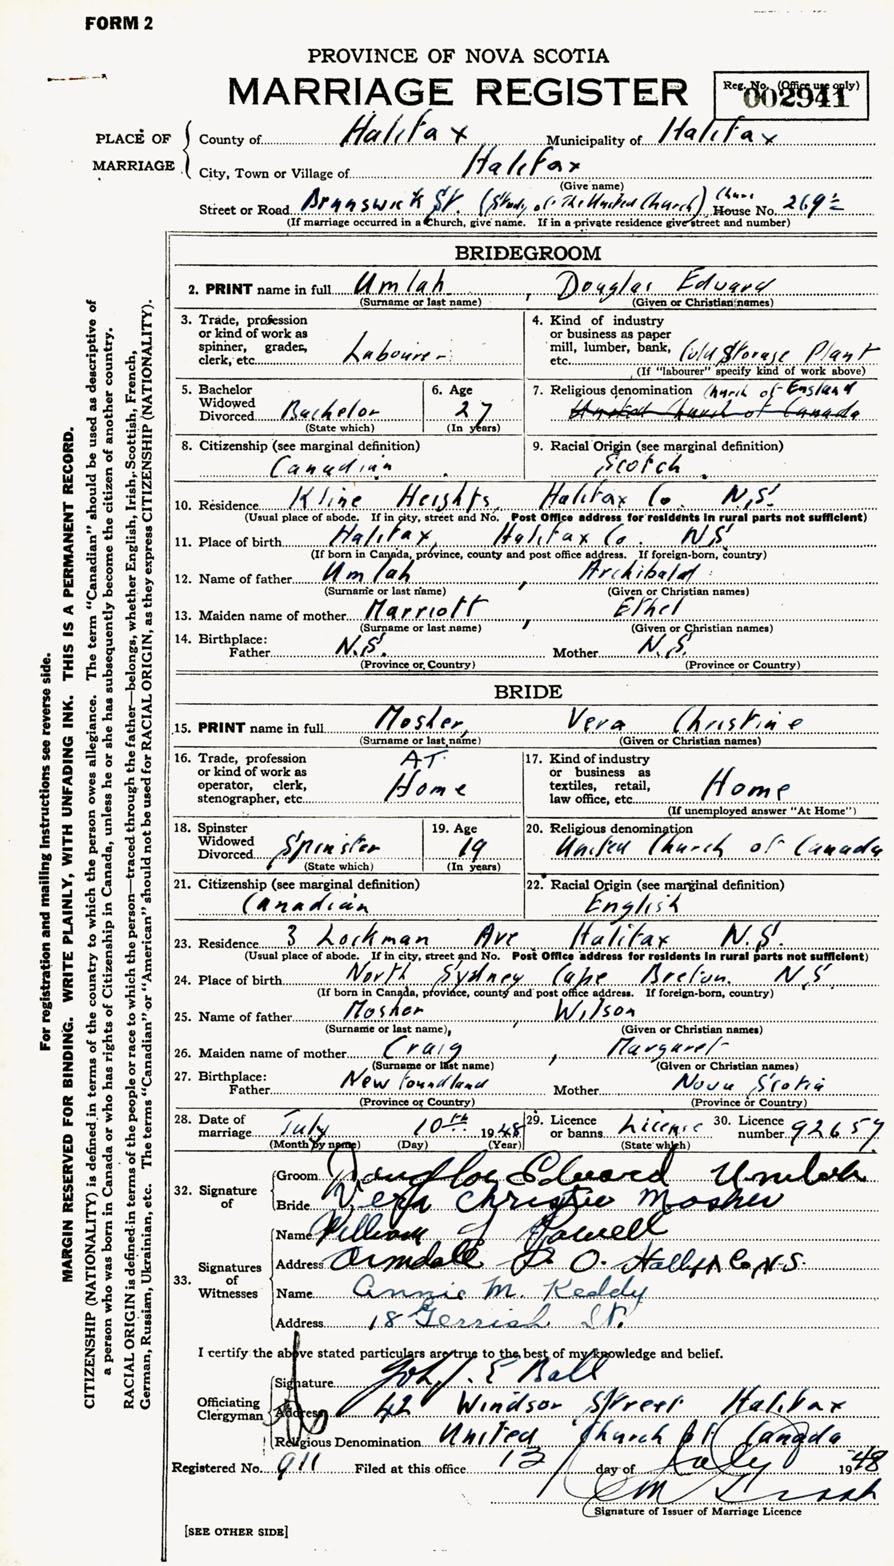 FORM 2
PROVINCE OF NOVA SCOTIA
MARRIAGE REGISTER
Reg. No. (Office use only)
002941
PLACE OF MARRIAGE
County of Halifax Municipality of Halifax
City, Town or Village of Halifax
(Give name)
Street or Road Brunswick St. (Study of The United Church) House No. 269
(If marriage occurred in a Church, give name. If in a private residence give street and number)
BRIDEGROOM
2. PRINT name in full Umlah, Douglas Edward
(Surname or last name) (Given or Christian names)
3. Trade, profession or kind of work as spinner, grades, clerk, etc. Labourer
4. Kind of industry or business as paper mill, lumber, bank, etc. Cold Storage Plant
(If "labourer" specify kind of work above)
5. Bachelor Widowed Divorced Bachelor
(State which)
6. Age 27
(In years)
7. Religious denomination Church of England
United Church of Canada
8. Citizenship (see marginal definition)
Canadian
9. Racial Origin (see marginal definition)
Scotch
10. Residence Kline Heights, Halifax Co. N.S.
(Usual place of abode. If in city, street and No. Post Office address for residents in rural parts not sufficient)
11. Place of birth Halifax, Halifax Co. N.S
(If born in Canada, province, county and post office address. If foreign-born, country)
12. Name of father Umlah, Archibald
(Surname or last name) (Given or Christian names)
13. Maiden name of mother Marriott, Ethel
(Surname or last name) (Given or Christian names)
14. Birthplace:
Father N.S. Mother N.S.
(Province or Country) (Province or Country)
BRIDE
15. PRINT name in full Mosher, Vera Christine
(Surname or last name) (Given or Christian names)
16. Trade, profession or kind of work as operator, clerk, stenographer, etc. AT Home
17. Kind of industry or business as textiles, retail, law office, etc. Home
(If unemployed answer "At Home")
18. Spinster Widowed Divorced Spinster
(State which)
19. Age 19
(In years)
20. Religious denomination
United Church of Canada
21. Citizenship (see marginal definition)
Canadian
22. Racial Origin (see marginal definition)
English
23. Residence 3 Lockman Ave Halifax N.S.
(Usual place of abode. If in city, street and No. Post Office address for residents in rural parts not sufficient)
24. Place of birth North Sydney Cape Breton N.S
(If born in Canada, province, county and post office address. If foreign-born, country)
25. Name of father Mosher, Wilson
(Surname or last name), (Given or Christian names)
26. Maiden name of mother Craig, Margaret
(Surname or last name) (Given or Christian names)
27. Birthplace:
Father Newfoundland Mother Nova Scotia
(Province or Country) (Province or Country)
28. Date of marriage July 10th 1948
(Month by name) (Day) (Year)
29. Licence or banns Licence
(State which)
30. Licence number 92657
32. Signature of
Groom Douglas Edward Umlah
Bride Vera Christine Mosher
33. Signatures of Witnesses
Name William J Powell
Address Armdale P.O. Halifax Co, N.S.
Name Annie M. Keddy
Address 18 Gerrish St.
I certify the above stated particulars are true to the best of my knowledge and belief.
Officiating Clergyman
Signature John E Ball
Address 42 Windsor Street Halifax
Religious Denomination United Church of Canada
Registered No. 911 Filed at this office 13 day of July 1948
Signature of Issuer of Marriage Licence
[SEE OTHER SIDE]
For registration and mailing instructions see reverse side.
MARGIN RESERVED FOR BINDING. WRITE PLAINLY, WITH UNFADING INK. THIS IS A PERMANENT RECORD.
CITIZENSHIP (NATIONALITY) is defined in terms of the country to which the person owes allegiance. The term "Canadian" should be used as descriptive of
a person who was born in Canada or who has rights of Citizenship in Canada, unless he or she has subsequently become the citizen of another country.
RACIAL ORIGIN is defined in terms of the people or race to which the person—traced through the father—belongs, whether English, Irish, Scottish, French,
German, Russian, Ukrainian, etc. The terms "Canadian" or "American" should not be used for RACIAL ORIGIN, as they express CITIZENSHIP (NATIONALITY).